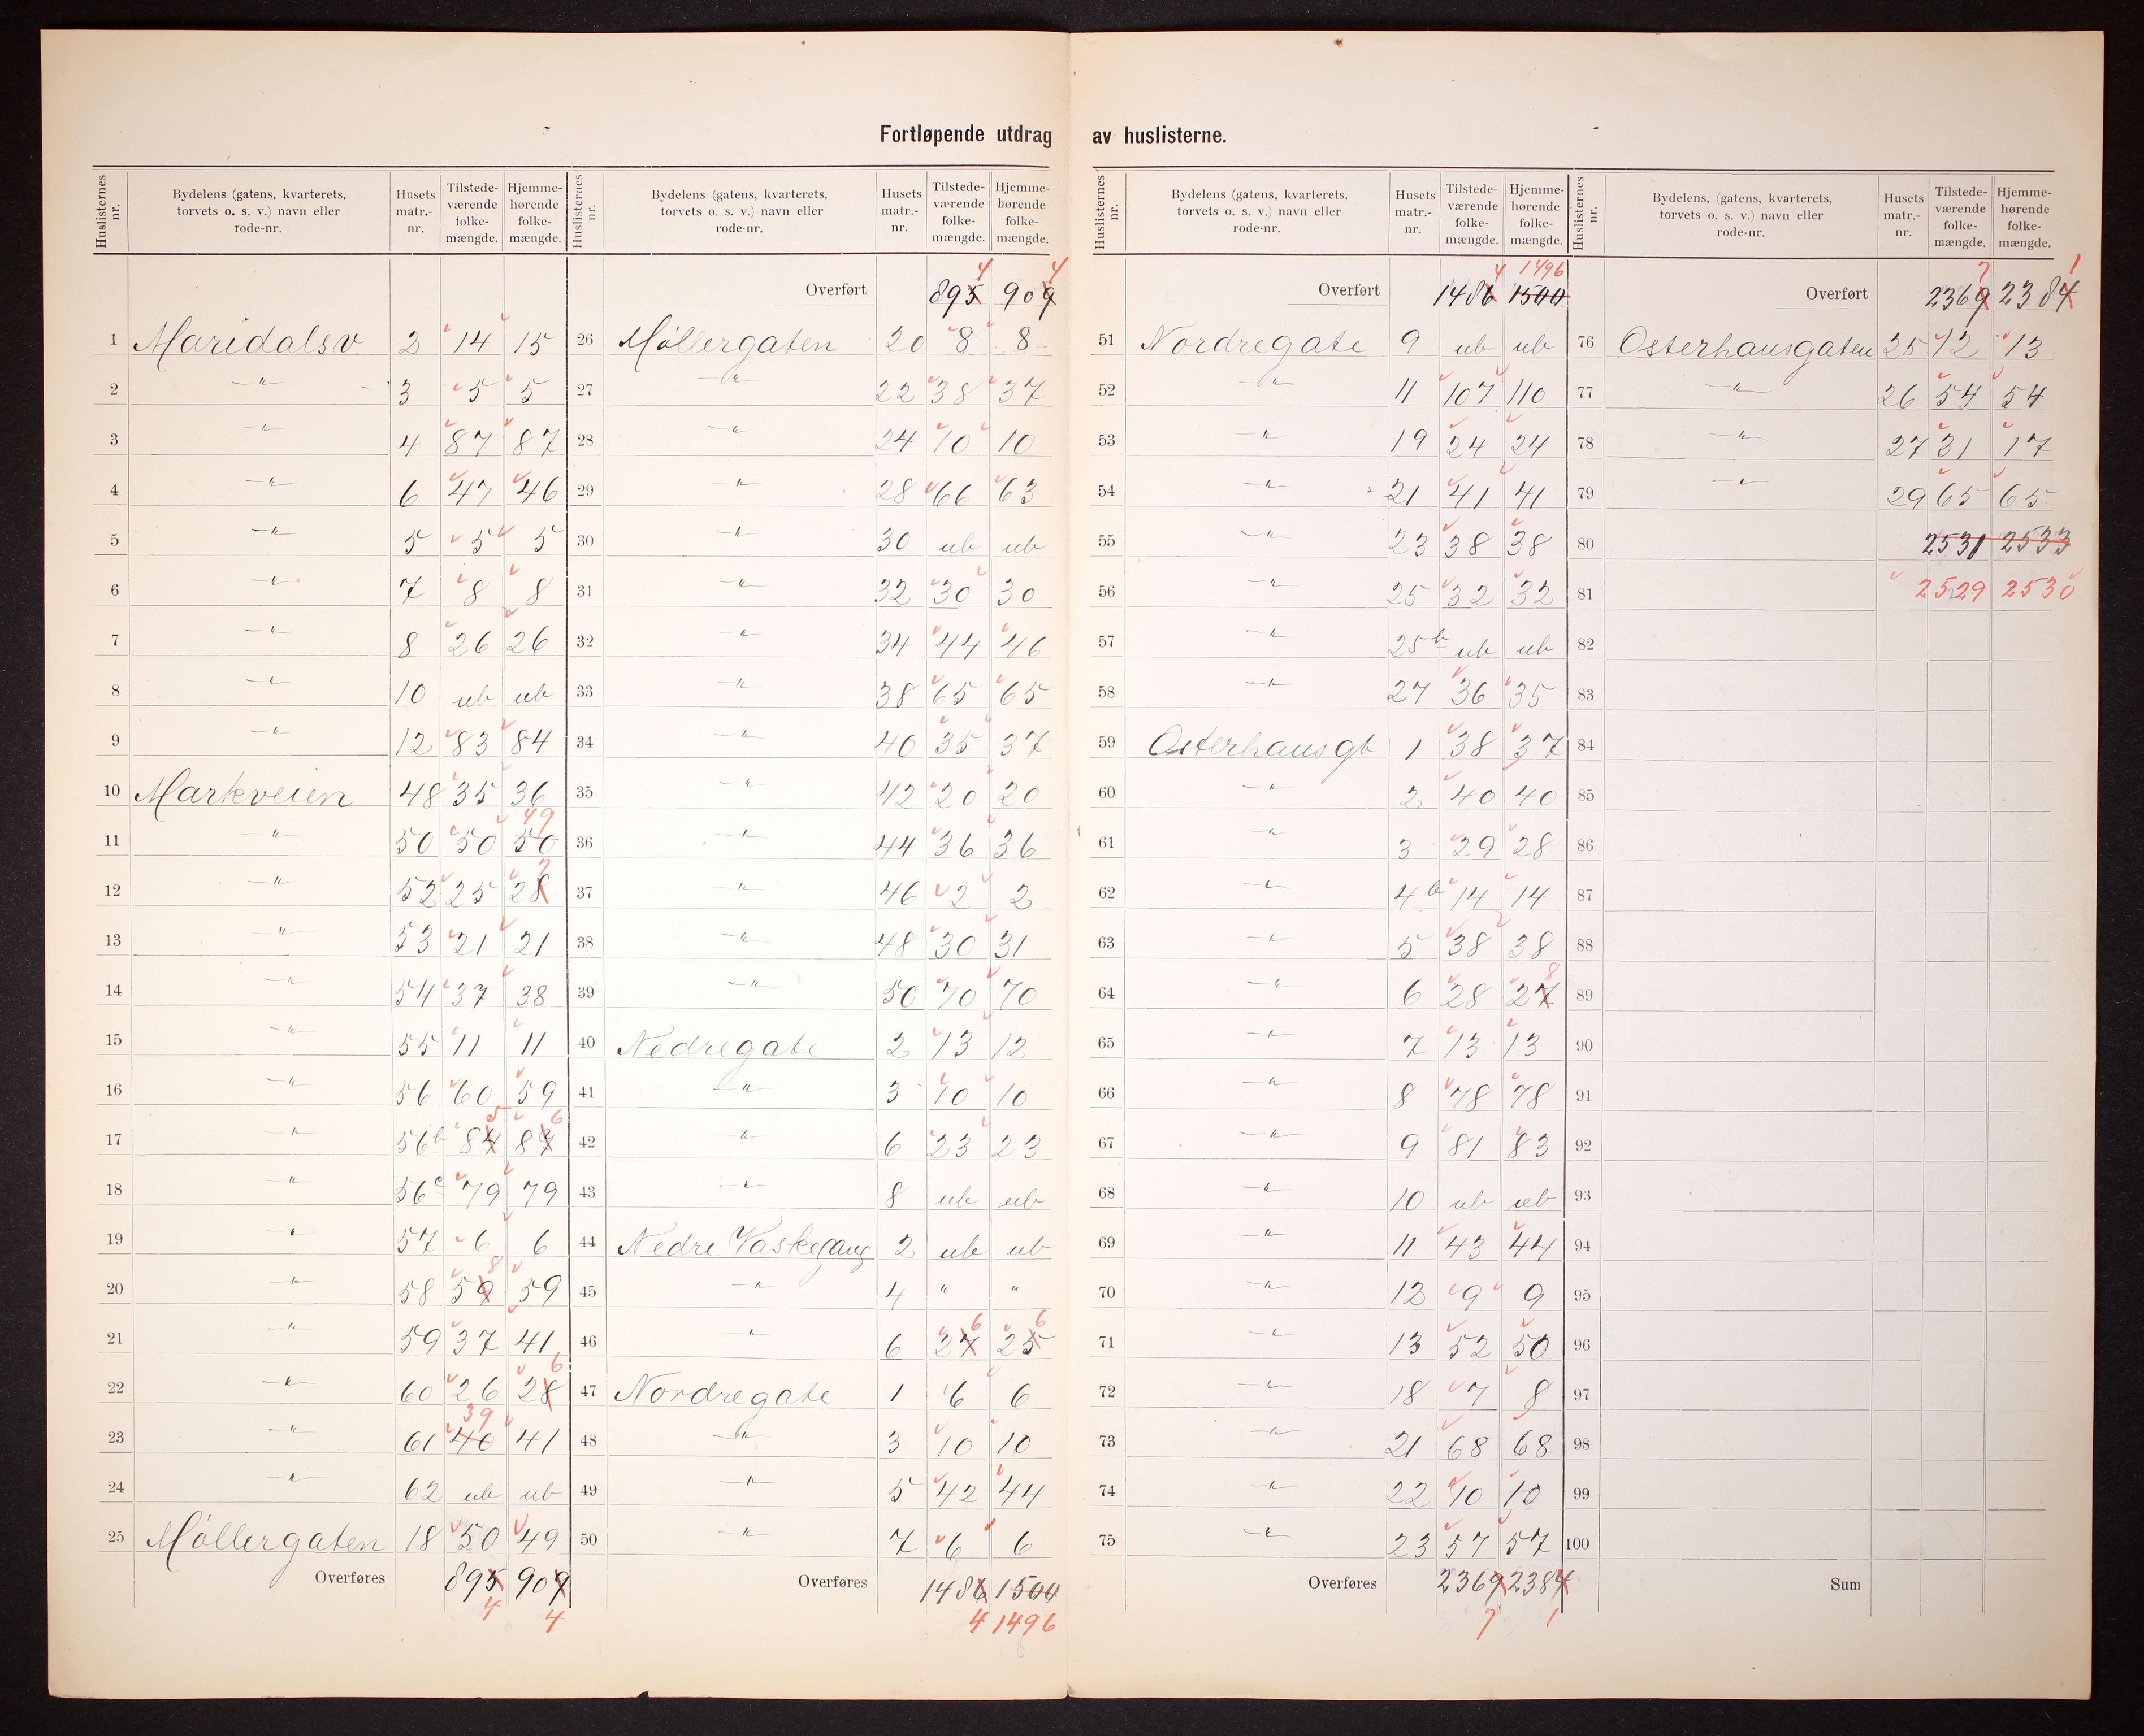 Fortløpende utdrag av huslisterne.
Huslisternes nr. | Bydelens (gatens, kvarterets, torvets o. s. v.) navn eller rode-nr. | Husets matr.-nr. | Tilstede-værende folke-mængde. | Hjemme-hørende folke-mængde.
1 Maridalsv 2 14 15
2 —"— 3 5 5
3 —"— 4 87 87
4 —"— 6 47 46
5 —"— 5 5 5
6 —"— 7 8 8
7 —"— 8 26 26
8 —"— 10 ub ub
9 —"— 12 83 84
10 Markveien 48 35 36
11 —"— 50 50 50 49
12 —"— 52 25 28 7
13 —"— 53 21 21
14 —"— 54 37 38
15 —"— 55 11 11
16 —"— 56 60 59
17 —"— 56b 84 5 87 6
18 —"— 56c 79 79
19 —"— 57 6 6
20 —"— 58 59 8 59
21 —"— 59 37 41
22 —"— 60 26 28 6
23 —"— 61 40 39 41
24 —"— 62 ub ub
25 Møllergaten 18 50 49
Overføres 895 4 909 4
Huslisternes nr. | Bydelens (gatens, kvarterets, torvets o. s. v.) navn eller rode-nr. | Husets matr.-nr. | Tilstede-værende folke-mængde. | Hjemme-hørende folke-mængde.
Overført 895 4 909 4
26 Møllergaten 20 8 8
27 —"— 22 38 37
28 —"— 24 10 10
29 —"— 28 66 63
30 —"— 30 ub ub
31 —"— 32 30 30
32 —"— 34 44 46
33 —"— 38 65 65
34 —"— 40 35 37
35 —"— 42 20 20
36 —"— 44 36 36
37 —"— 46 2 2
38 —"— 48 30 31
39 —"— 50 70 70
40 Nedregate 2 13 12
41 —"— 3 10 10
42 —"— 6 23 23
43 —"— 8 ub ub
44 Nedre Vaskegang 2 ub ub
45 —"— 4 " "
46 —"— 6 27 6 25 6
47 Nordregate 1 6 6
48 —"— 3 10 10
49 —"— 5 42 44
50 —"— 7 6 6
Overføres 1486 4 1500 1496
Huslisternes nr. | Bydelens (gatens, kvarterets, torvets o. s. v.) navn eller rode-nr. | Husets matr.-nr. | Tilstede-værende folke-mængde. | Hjemme-hørende folke-mængde.
Overført 1486 4 1500 1496
51 Nordregate 9 ub ub
52 —"— 11 107 110
53 —"— 19 24 24
54 —"— 21 41 41
55 —"— 23 38 38
56 —"— 25 32 32
57 —"— 25b ub ub
58 —"— 27 36 35
59 Osterhausgt 1 38 37
60 —"— 2 40 40
61 —"— 3 29 28
62 —"— 4b 14 14
63 —"— 5 38 38
64 —"— 6 28 27 8
65 —"— 7 13 13
66 —"— 8 78 78
67 —"— 9 81 83
68 —"— 10 ub ub
69 —"— 11 43 44
70 —"— 12 9 9
71 —"— 13 52 50
72 —"— 18 7 8
73 —"— 21 68 68
74 —"— 22 10 10
75 —"— 23 57 57
Overføres 2369 7 2384 1
Huslisternes nr. | Bydelens, (gatens, kvarterets, torvets o. s. v.) navn eller rode-nr. | Husets matr.-nr. | Tilstede-værende folke-mængde. | Hjemme-hørende folke-mængde.
Overført 2369 7 2384 1
76 Osterhausgaten 25 12 13
77 —"— 26 54 54
78 —"— 27 31 17
79 —"— 29 65 65
80 2531 2533
81 2529 2530
82
83
84
85
86
87
88
89
90
91
92
93
94
95
96
97
98
99
100
Sum